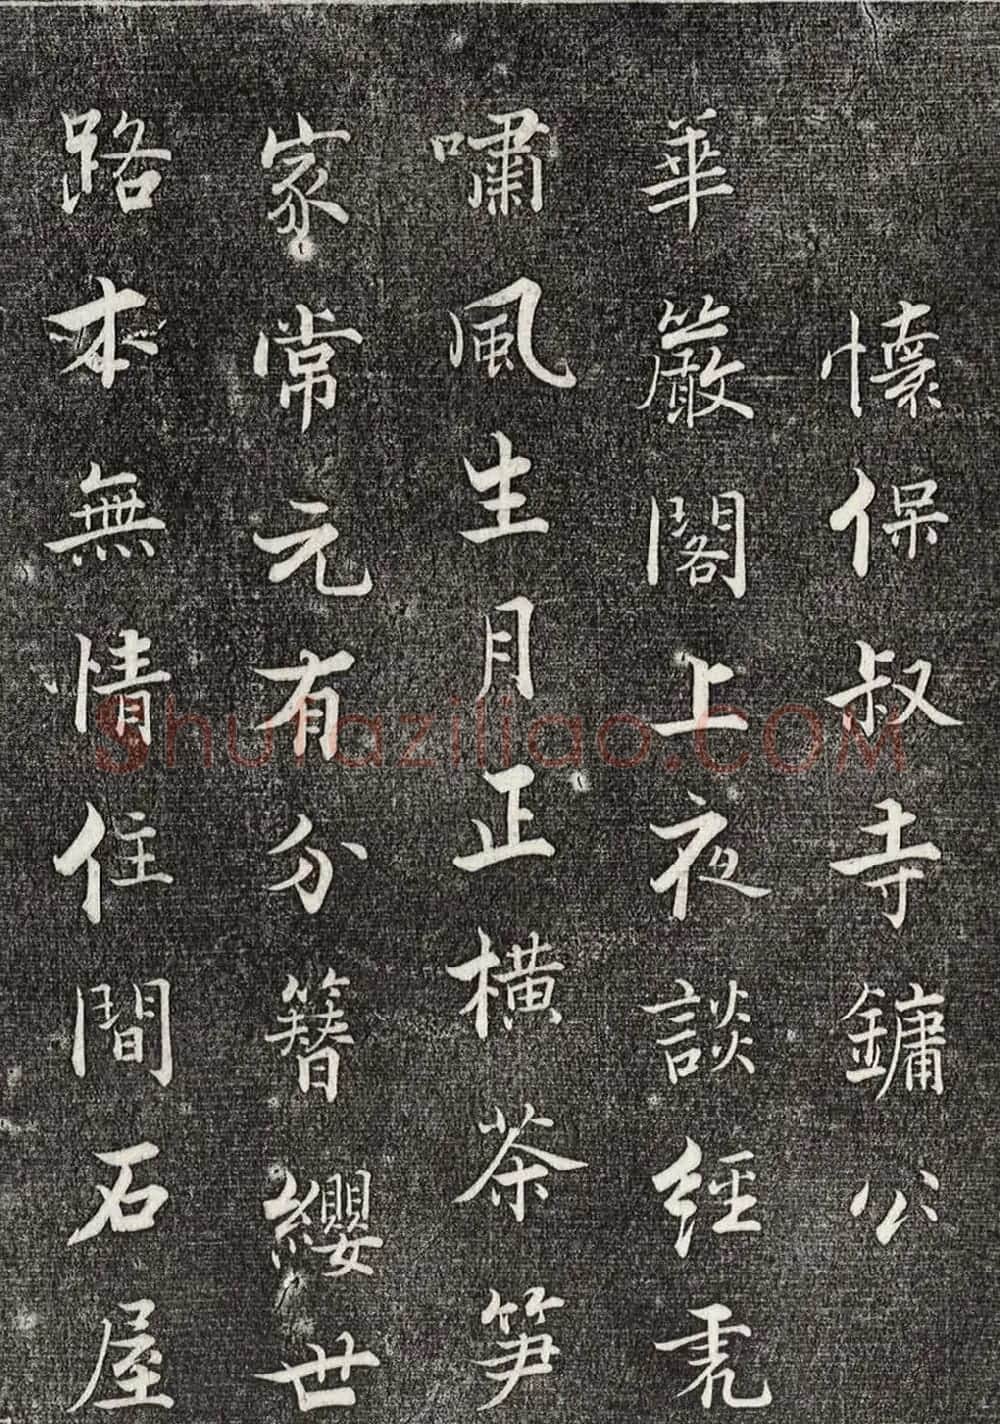 懷保叔寺鏞公
華嚴閣上夜談經虎
嘯風生月正橫茶笋
家常元有分簪纓世
路本無情住間石屋
Shufaziliao.com